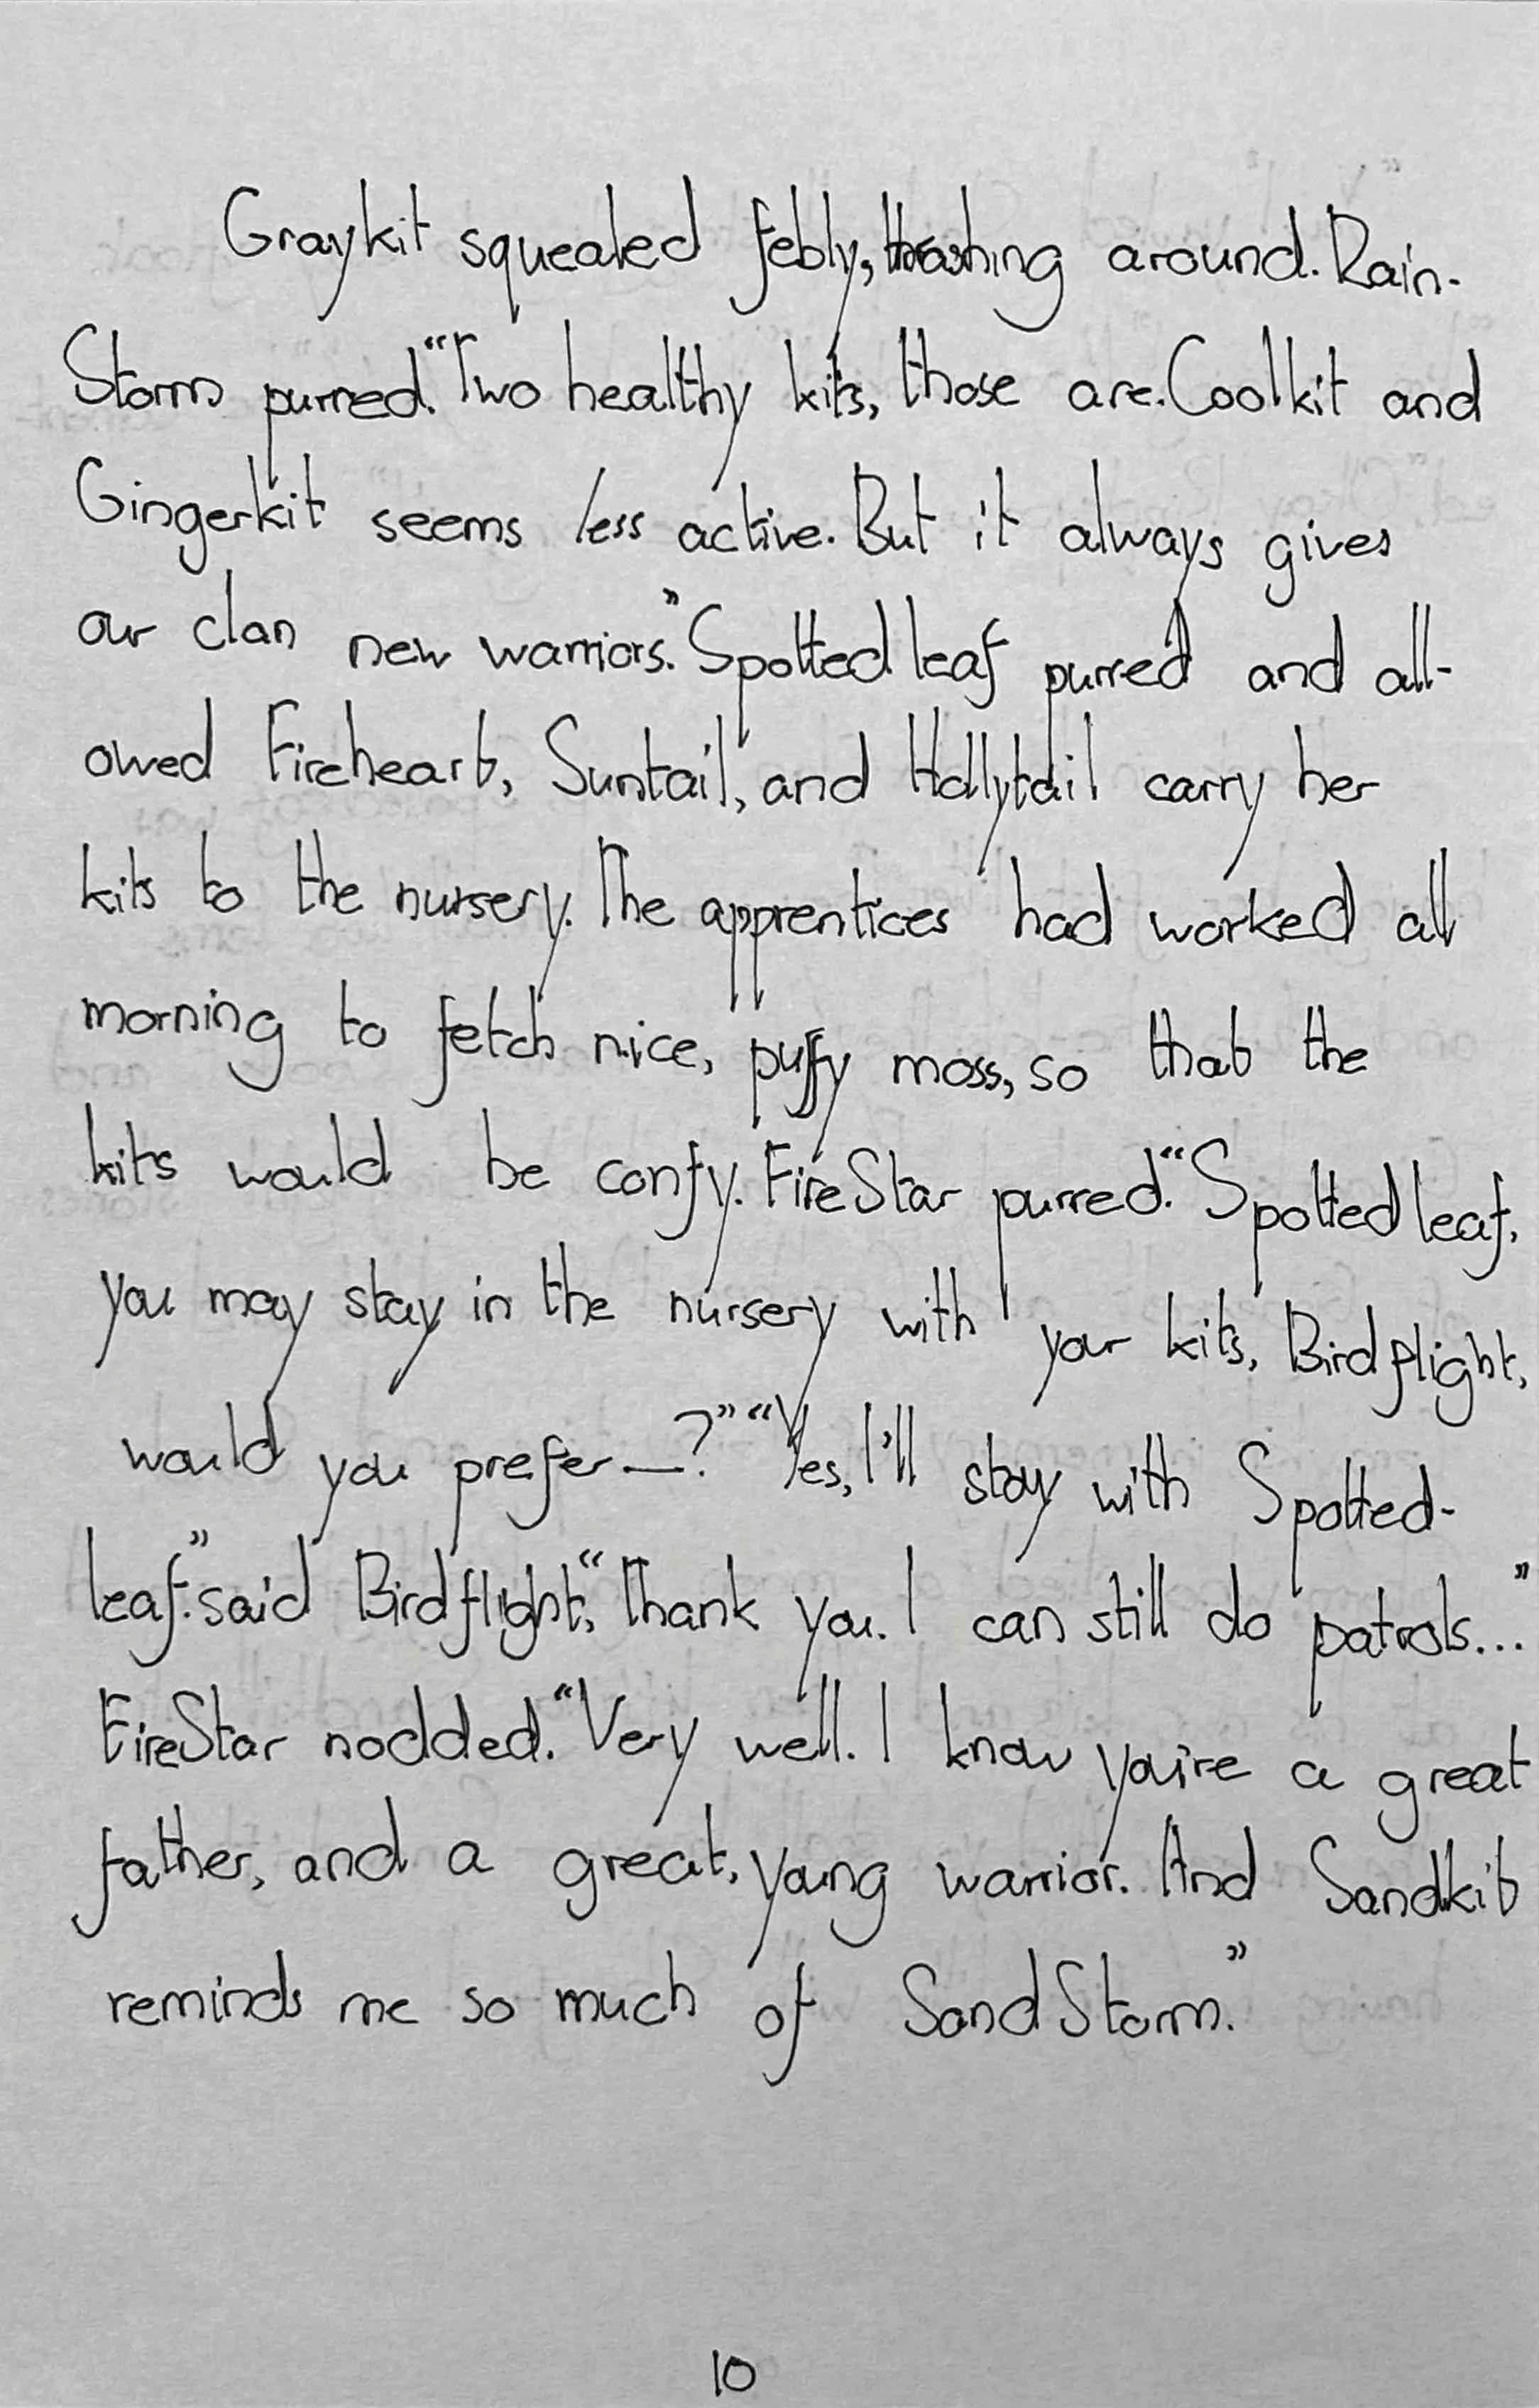 Graykit squealed febly, thrashing around. Rain-
Storm purred. "Two healthy kits, those are. Coolkit and
Gingerkit seems less active. But it always gives
our clan new warriors." Spottedleaf purred and all-
owed Fireheart, Suntail, and Hollytail carry her
kits to the nursery. The apprentices had worked all
morning to fetch nice, puffy moss, so that the
kits would be confy. FireStar purred. "Spottedleaf,
you may stay in the nursery with your kits, Birdflight,
would you prefer—?" "Yes, I'll stay with Spotted-
leaf." said Birdflight, "Thank you. I can still do patrols..."
FireStar nodded. "Very well. I know you're a great
father, and a great, young warrior. And Sandkit
reminds me so much of SandStorm."
10